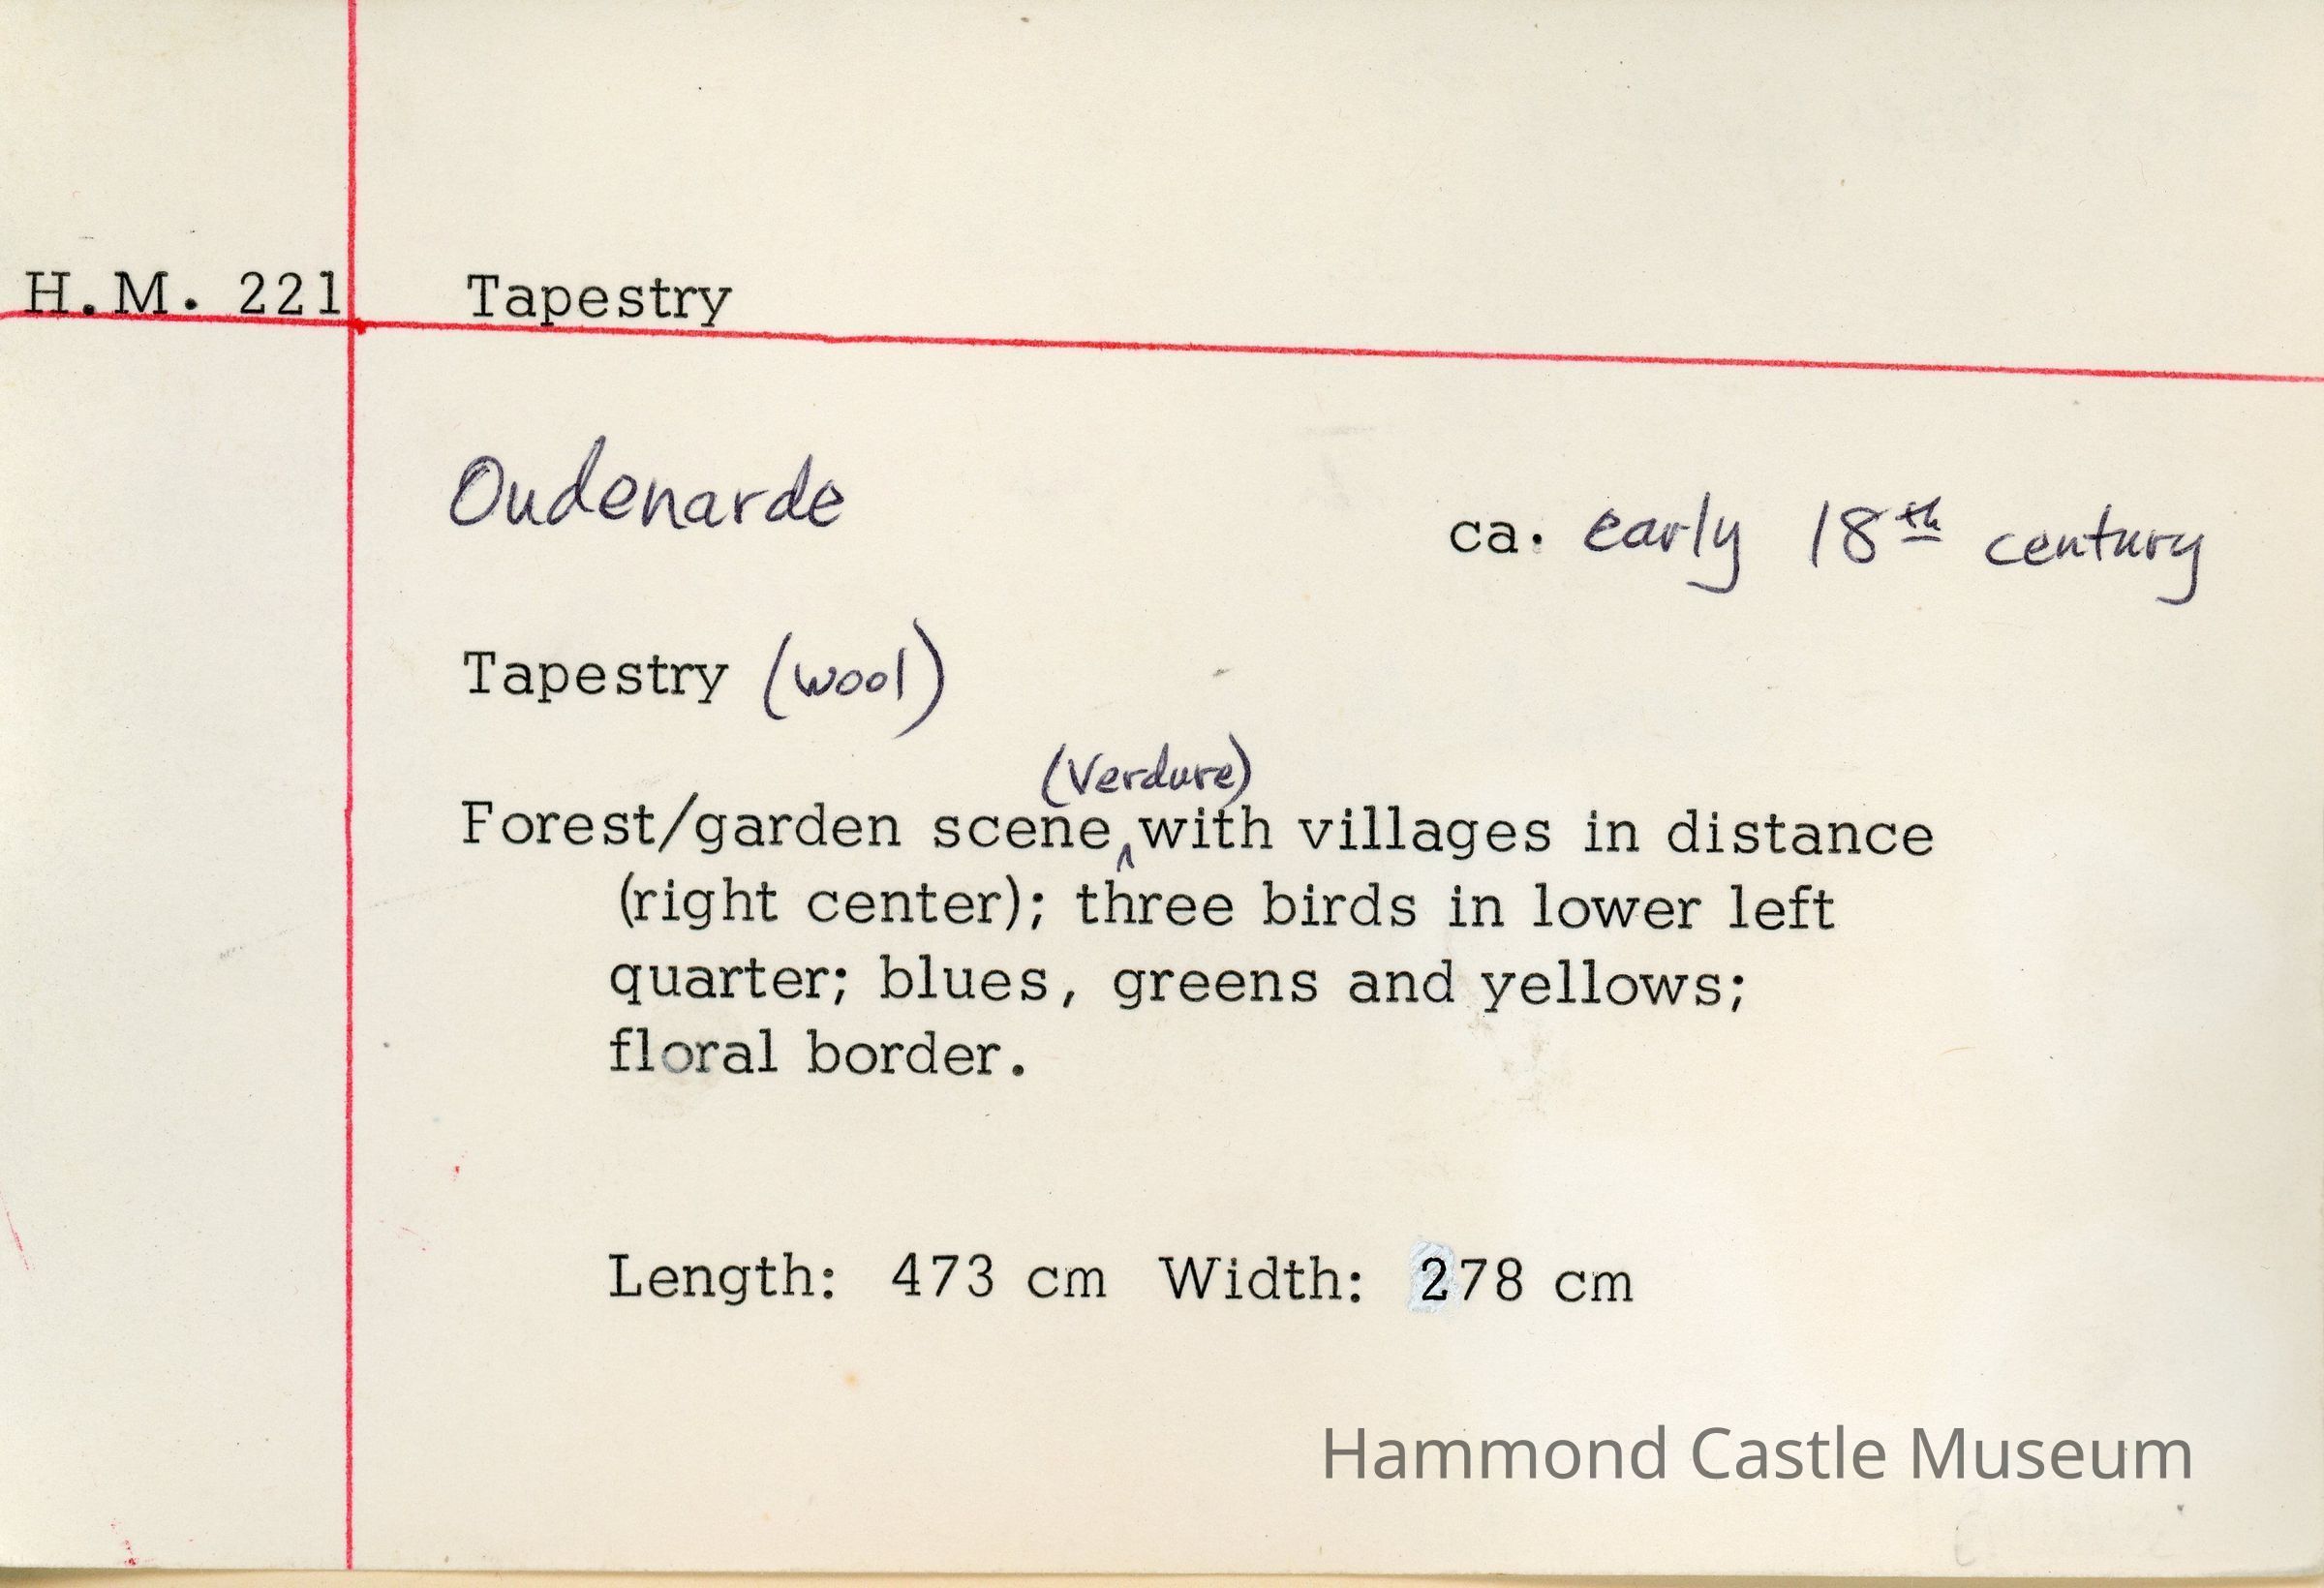 H.M. 221 Tapestry
Oudenarde
ca. early 18th century
Tapestry (wool)
(Verdure)
Forest/garden scene ‸ with villages in distance
(right center); three birds in lower left
quarter; blues, greens and yellows;
floral border.
Length: 473 cm Width: 278 cm
Hammond Castle Museum